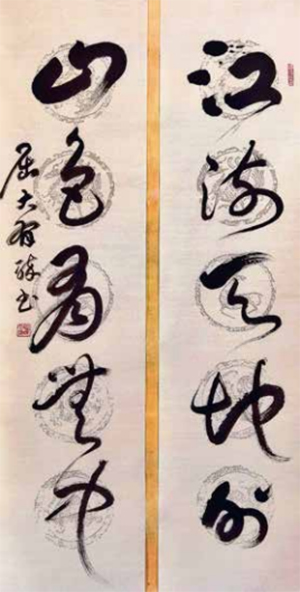 江流天地外
山色有無中
屈大有书